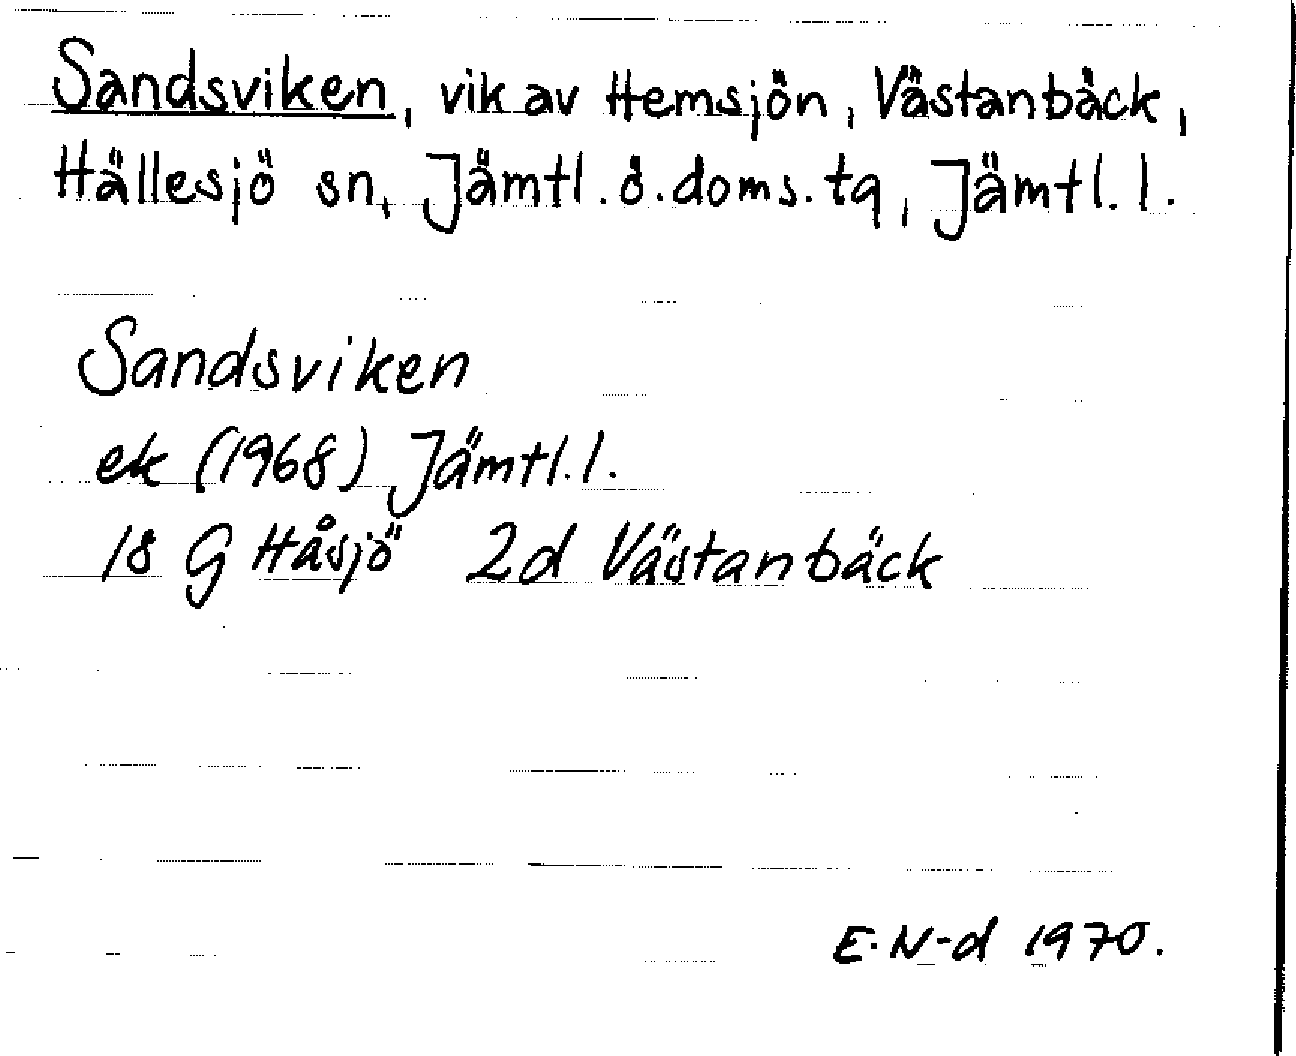 Sandsviken, vik av Hemsjön, Västanbäck,
Hällesjö sn, Jämtl. ö. doms. tg, Jämtl. l.
Sandsviken
ek (1968) Jämtl. l.
18 G Håsjö 2d Västanbäck
E. N-d 1970.